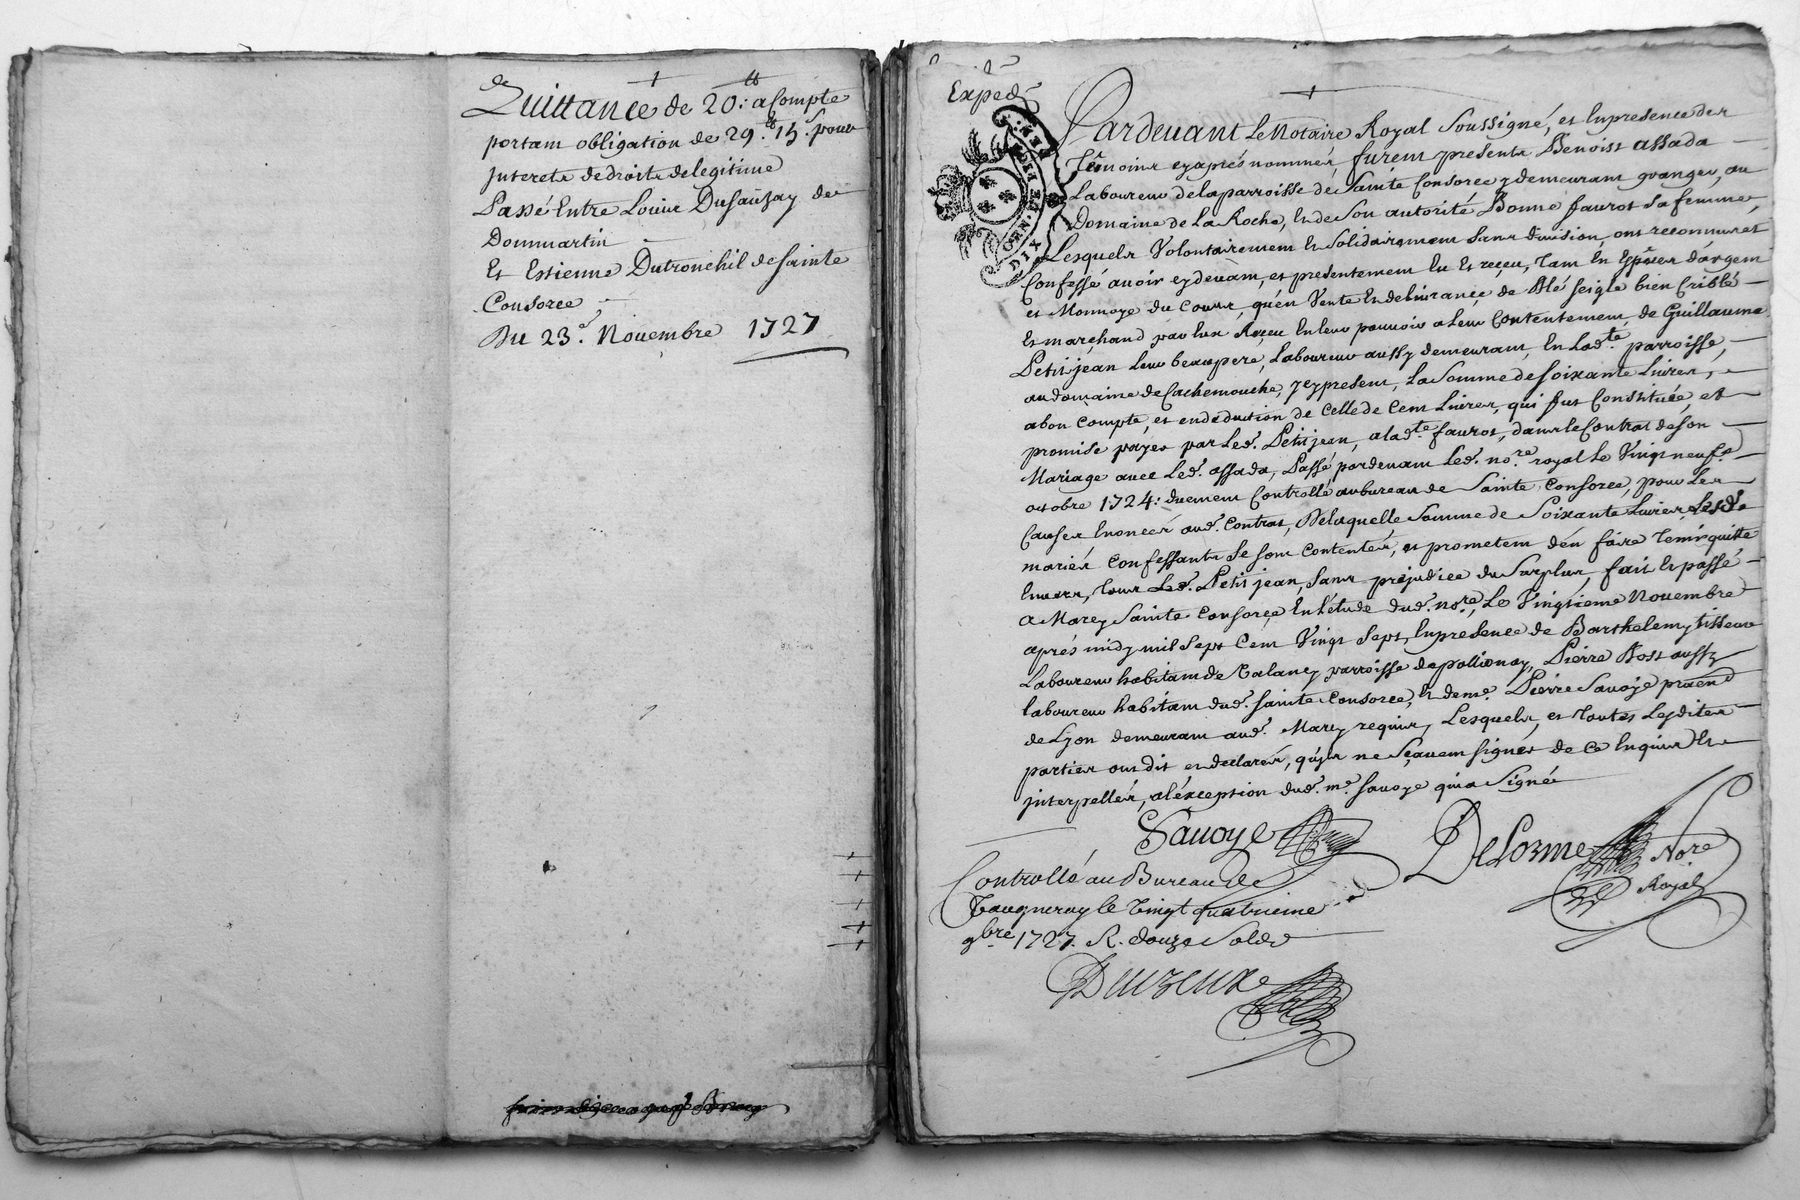 Quittance de 20.ᵗᵗ acompte
portant obligation de 29.ᵗᵗ 15.ˢ pour
Interets de droits de legitime
Passé Entre Louise Dusauzay de
Dommartin
Et Estienne Dutronchil de Sainte
Consorce
Du 23.ᵉ Novembre 1727
Expéd.
DIX DEN. DE
Pardevant Le Notaire Royal Soussigné, et En presence des
Témoins cy aprés nommés, furent presents Benoist assada
Laboureur de la parroisse de Sainte Consorce y demeurant granger, au
Domaine de La Roche, et de Son autorité Bonne faurot Sa femme,
Lesquels Volontairement et Solidairement Sans division, ont reconnu et
Confessé avoir cy devant, et presentement Eu et reçeu, tant En Espéces d'argent
et Monnoye du Cours, qu'en Vente et délivrance de Blé Seigle bien Criblé
et marchand par Eux Reçeu En leur pouvoir a leur Contentement, de Guillaume
Petitjean leur beaupere, Laboureur aussy demeurant En Lad.ᵗᵉ parroisse,
au domaine de Cachemouche, Icy present, La Somme de Soixante Livres,
a bon Compte, et en deduction de Celle de Cent Livres, qui fut Constituée, et
promise payer par Led. Petitjean, a lad.ᵗᵉ faurot, dans le Contrat de Son
Mariage avec Led. assada, Passé pardevant Led. no.ʳᵉ royal Le Vingt neuf
octobre 1724: duement Controllé au bureau de Sainte Consorce, pour Les
Causes Enoncées aud. Contrat, De Laquelle Somme de Soixante Livres Lesd.
mariés Confessants Se Sont Contentés, et prometent d'en faire tenir quitte
Envers, tous Led. Petitjean, Sans préjudice du Surplus, fait et passé
a Marcy Sainte Consorce En L'étude dud. no.ʳᵉ, Le Vingtieme Novembre
aprés midy mil Sept Cent Vingt Sept, En presence de Barthelemy tisseur
Laboureur habitant de Valancy parroisse de pollionay, Pierre Bost aussy
laboureur habitant dud. Sainte Consorce, et de me. Pierre Savoye praten
de Lyon demeurant aud. Marcy requis, Lesquels, et toutes Lesdites
parties ont dit et declarés, qu'ils ne Sçavent Signer de Ce Enquis et
interpellés, a l'éxception dud. me. Savoye qui a Signé
Savoye
DeLorme No.ʳᵉ
Royal
Controllé au Bureau de
Vaugneray le Vingt quatrieme
9bre 1727. R. douze Sols
Duvzeux